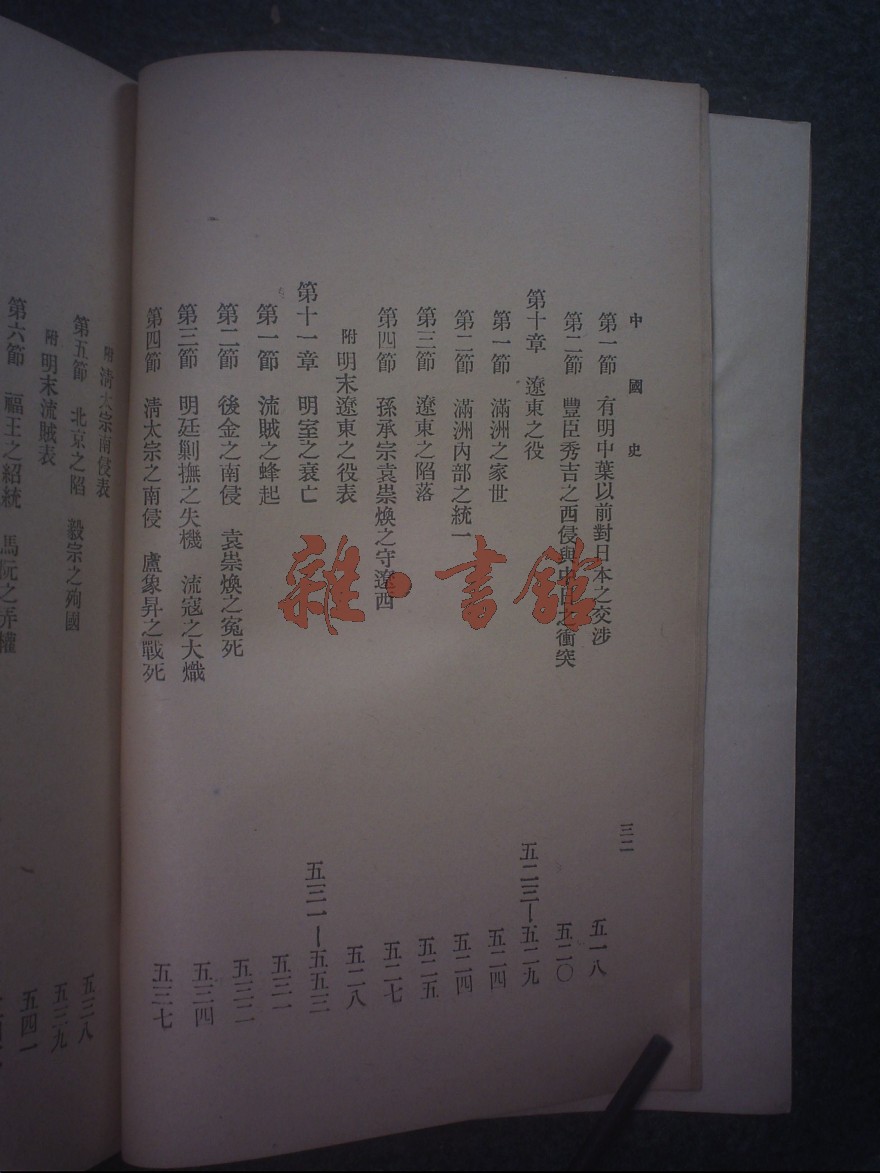 中國史
三二
第一節 有明中葉以前對日本之交涉 五一八
第二節 豐臣秀吉之西侵與中日之衝突 五二〇
第十章 遼東之役 五二三—五二九
第一節 滿洲之家世 五二四
第二節 滿洲內部之統一 五二四
第三節 遼東之陷落 五二五
第四節 孫承宗袁崇煥之守遼西 五二七
附 明末遼東之役表 五二八
第十一章 明室之衰亡 五三一—五五三
第一節 流賊之蜂起 五三一
第二節 後金之南侵 袁崇煥之冤死 五三二
第三節 明廷剿撫之失機 流寇之大熾 五三四
第四節 清太宗之南侵 盧象昇之戰死 五三七
附 清太宗南侵表 五三八
第五節 北京之陷 毅宗之殉國 五三九
附 明末流賊表 五四一
第六節 福王之紹統 馬阮之弄權
雜·書館